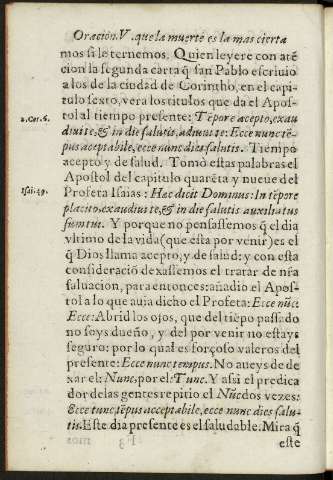 Oracion. V. que la muerte es la mas cierta
mos si le ternemos. Quien leyere con atē
cion la segunda carta q̃ san Pablo escriuio
a los de la ciudad de Gorintho, en el capi
tulo sexto, vera los titulos que da el Apos-
2. Cor. 6. tol al tiempo presente: Tẽpore accepto, exau
diui te, & in die salutis, adiuui te: Ecce nunc tẽ-
pus acceptabile, ecce nunc dies salutis. Tiempo
acepto y de salud. Tomò estas palabras el
Apostol del capitulo quarẽta y nueue del
Isai. 49. Profeta Isaias: Hæc dicit Dominus: In tẽpore
placito, exaudiui te, & in die salutis auxiliatus
sum tui. Y porque no pensassemos q̃ el dia
vltimo de la vida (que esta por venir) es el
q̃ Dios llama acepto, y de salud: y con esta
consideraciō dexassemos el tratar de nr̃a
saluacion, para entonces: añadio el Apos-
tol a lo que auia dicho el Profeta: Ecce nũc:
Ecce: Abrid los ojos, que del tiẽpo passado
no soys dueño, y del por venir no estays
seguro: por lo qual es forçoso valeros del
presente: Ecce nunc tempus. No aueys de de
xar el: Nunc, por el: Tunc. Y assi el predica
dor de las gentes repitio el Nũc dos vezes:
Ecce tunc, tẽpus acceptabile, ecce nunc dies salu-
tis. Este dia presente es el saludable. Mira q̃
este